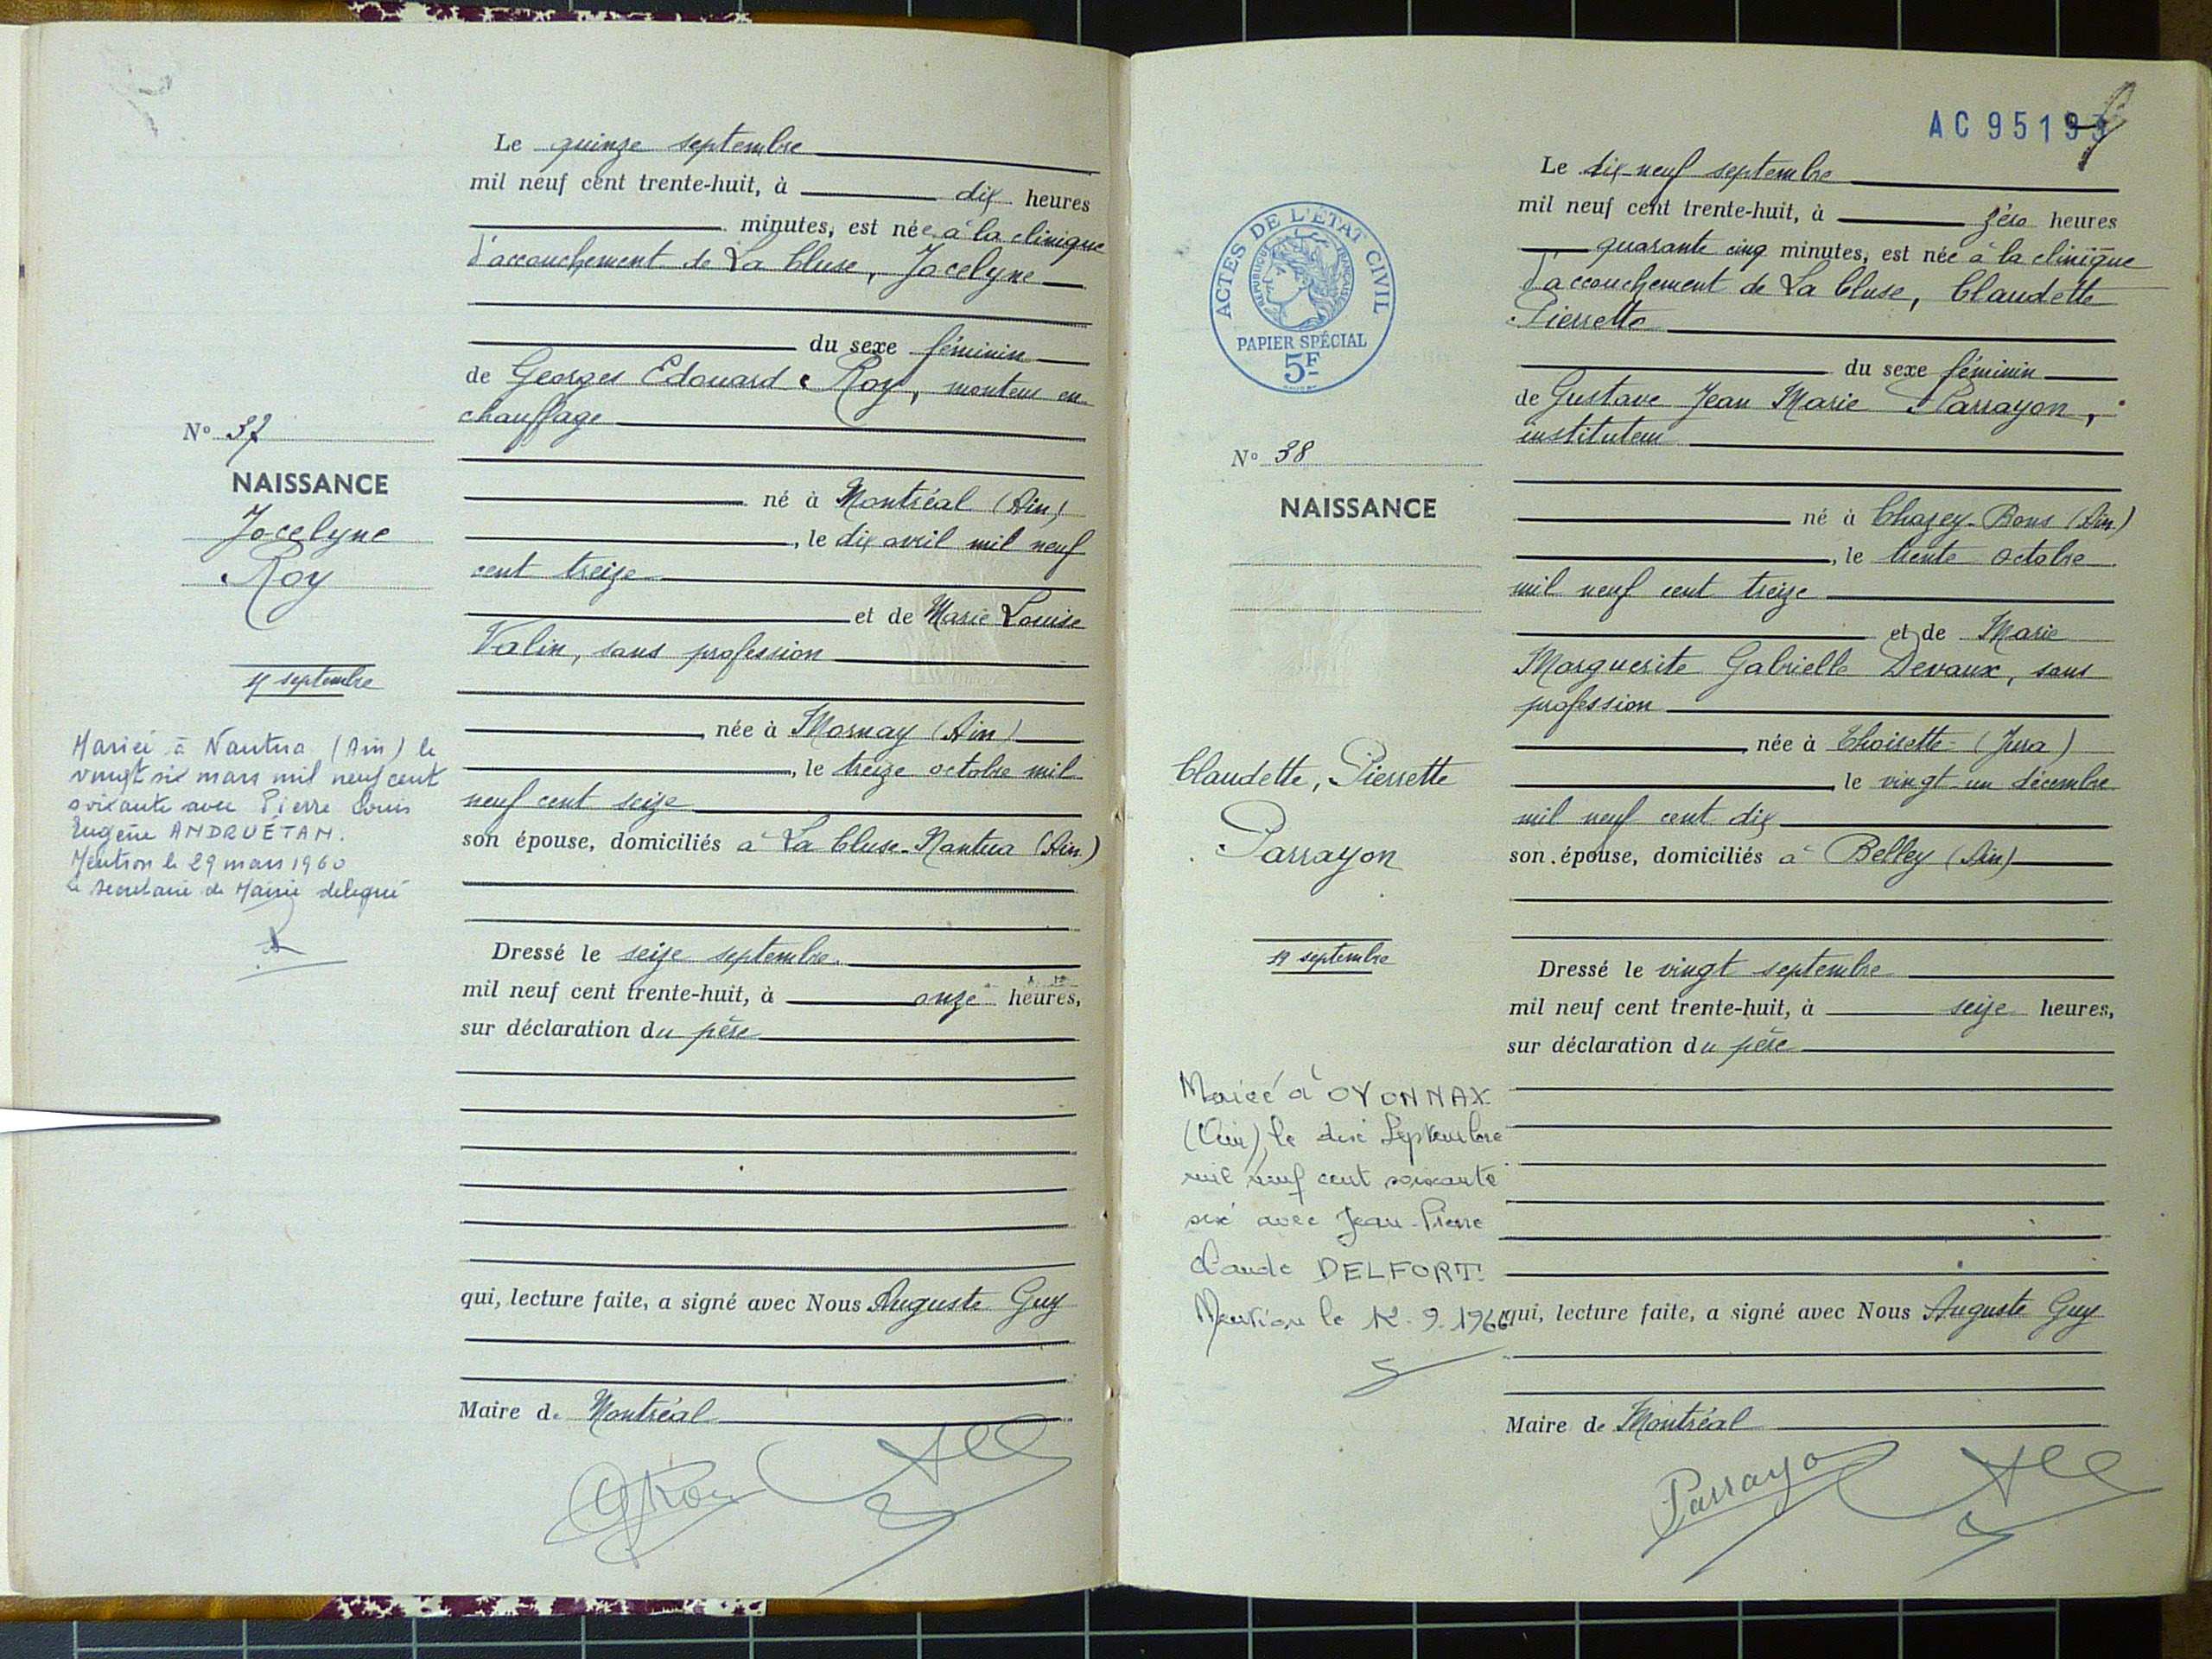 Le quinze septembre
mil neuf cent trente-huit, à dix heures
minutes, est née à la clinique
d'accouchement de La Cluse, Jocelyne
du sexe féminin
de Georges Edouard Roy, monteur en
chauffage
né à Montréal (Ain)
, le dix avril mil neuf
cent treize
et de Marie Louise
Valin, sans profession
née à Mornay (Ain)
, le treize octobre mil
neuf cent seize
son épouse, domiciliés à La Cluse-Nantua (Ain)
Dressé le seize septembre
mil neuf cent trente-huit, à onze heures,
sur déclaration du père
qui, lecture faite, a signé avec Nous Auguste Guy
Maire de Montréal
N° 37
NAISSANCE
Jocelyne
Roy
septembre
Mariée à Nantua (Ain) le
vingt six mars mil neuf cent
soixante avec Pierre Louis
Eugène ANDRUÉTAN.
Mention le 29 mars 1960
Le secrétaire de Mairie délégué
AC 9519
Le dix-neuf septembre
mil neuf cent trente-huit, à zéro heures
quarante cinq minutes, est née à la clinique
d'accouchement de La Cluse, Claudette
Pierrette
du sexe féminin
de Gustave Jean Marie Parrayon,
instituteur
né à Chazey-Bons (Ain)
, le trente octobre
mil neuf cent treize
et de Marie
Marguerite Gabrielle Devaux, sans
profession
née à Choisette (Jura)
, le vingt-un décembre
mil neuf cent dix
son épouse, domiciliés à Belley (Ain)
Dressé le vingt septembre
mil neuf cent trente-huit, à seize heures,
sur déclaration du père
qui, lecture faite, a signé avec Nous Auguste Guy
Maire de Montréal
Parrayon
ACTES DE L'ÉTAT CIVIL
RÉPUBLIQUE FRANÇAISE
PAPIER SPÉCIAL
5F
N° 38
NAISSANCE
Claudette, Pierrette
Parrayon
19 septembre
Mariée à OYONNAX
(Ain) le dix Septembre
mil neuf cent soixante
six avec Jean-Pierre
Claude DELFORT.
Mention le 12.9.1966